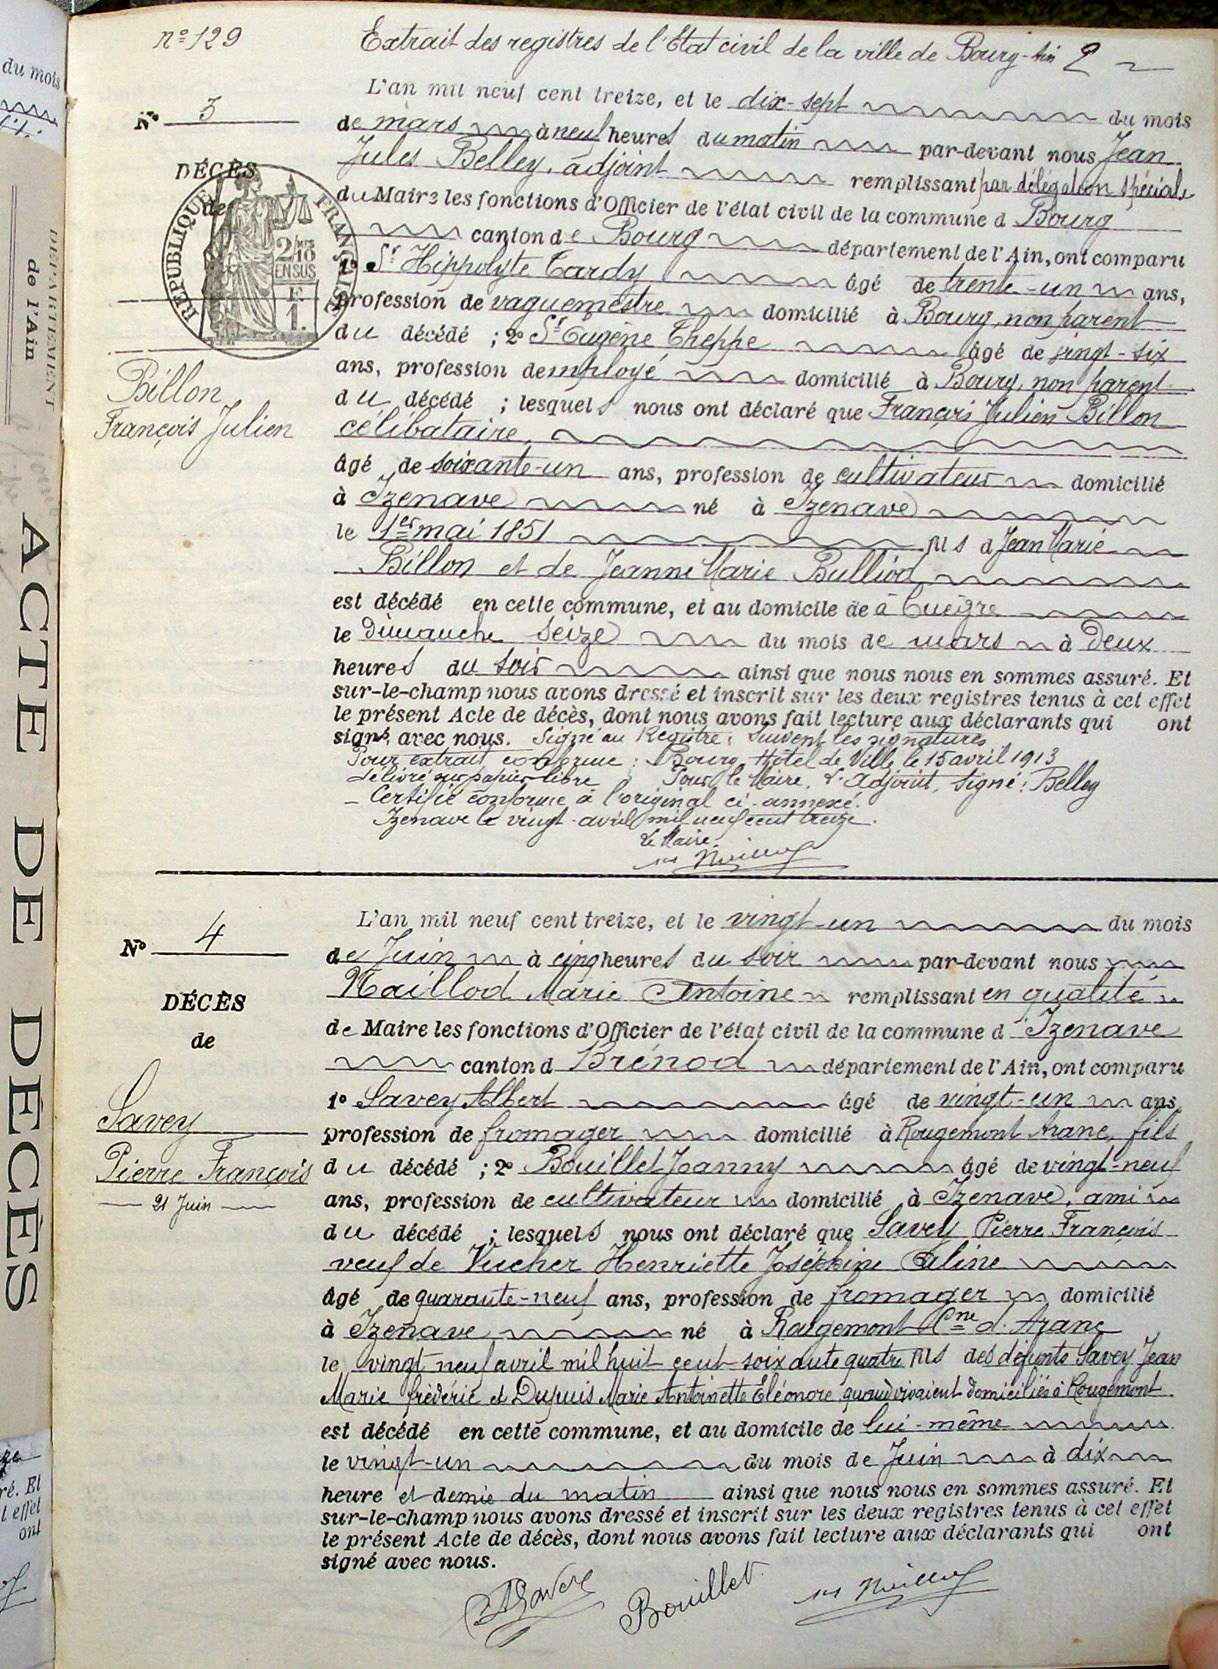 du mois
DÉPARTEMENT
de l'Ain
ACTE DE DÉCÈS
ré. Et
t effet
ont
Nº 129
Extrait des registres de l'Etat civil de la ville de Bourg-Ain 2
Nº 3
DÉCÈS
de
RÉPUBLIQUE FRANÇAISE
2/10
EN SUS
F.
1.
Billon
François Julien
L'an mil neuf cent treize, et le dix-sept du mois
de mars à neuf heures du matin par-devant nous Jean
Jules Belley, adjoint remplissant par délégation spéciale
du Maire les fonctions d'Officier de l'état civil de la commune d Bourg
canton de Bourg département de l'Ain, ont comparu
1º Sr Hippolyte Tardy âgé de trente-un ans,
profession de vaguemestre domicilié à Bourg, non parent
du décédé ; 2º Sr Eugène Theppe âgé de vingt-six
ans, profession de employé domicilié à Bourg, non parent
du décédé ; lesquels nous ont déclaré que François Julien Billon
célibataire,
âgé de soixante-un ans, profession de cultivateur domicilié
à Izenave né à Izenave
le 1er mai 1851 fils d Jean Marie
Billon et de Jeanne Marie Bulliod
est décédé en cette commune, et au domicile de à Cuègre
le dimanche seize du mois de mars à deux
heures du soir ainsi que nous nous en sommes assuré. Et
sur-le-champ nous avons dressé et inscrit sur les deux registres tenus à cet effet
le présent Acte de décès, dont nous avons fait lecture aux déclarants qui ont
signé avec nous. Signé au Registre : suivent les signatures
Pour extrait conforme : Bourg, Hôtel de Ville le 15 avril 1913
délivré sur papier libre Pour le Maire, l'adjoint, signé : Belley
– Certifié conforme à l'original ci-annexé.
Izenave le vingt avril mil neuf cent treize.
Le Maire
Mª Maillod
Nº 4
DÉCÈS
de
Savey
Pierre François
21 Juin
L'an mil neuf cent treize, et le vingt-un du mois
de Juin à cinq heures du soir par-devant nous
Maillod Marie Antoine remplissant en qualité
de Maire les fonctions d'Officier de l'état civil de la commune d'Izenave
canton d Brénod département de l'Ain, ont comparu
1º Savey Albert âgé de vingt-un ans,
profession de fromager domicilié à Rougemont Aranc, fils
du décédé ; 2º Bouillet Joanny âgé de vingt-neuf
ans, profession de cultivateur domicilié à Izenave, ami
du décédé ; lesquels nous ont déclaré que Savey Pierre François
veuf de Vucher Henriette Joséphine Céline
âgé de quarante-neuf ans, profession de fromager domicilié
à Izenave né à Rougemont Cne d'Aranc
le vingt neuf avril mil huit cent soixante quatre fils des défunts Savey Jean
Marie Frédéric et Dupuis Marie Antoinette Eléonore quand vivaient domiciliés à Rougemont
est décédé en cette commune, et au domicile de lui-même
le vingt-un du mois de Juin à dix
heure et demie du matin ainsi que nous nous en sommes assuré. Et
sur-le-champ nous avons dressé et inscrit sur les deux registres tenus à cet effet
le présent Acte de décès, dont nous avons fait lecture aux déclarants qui ont
signé avec nous.
A Savey Bouillet Mª Maillod